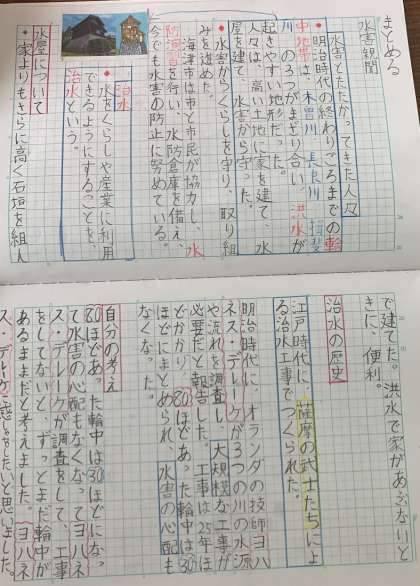 まとめる
水害新聞
水害とたたかってきた人々
・明治時代の終わりごろまでの輪
中地帯は、木曽川 長良川 揖斐
川の3つがまざり合い、洪水が
起きやすい地形だった。
人々は、高い土地に家を建て、水
屋を建て、水害から守った。
・水害からくらしを守り、取り組
みを進めた。
海津市は市と市民が協力し、水
防演習を行い、水防倉庫を備え、
今でも水害の防止に努めている。
治水
・水をくらしや産業に利用
できるようにすることを、
治水という。
水屋について
・家よりもさらに高く石垣を組ん
で建てた。洪水で家があぶないと
きに、便利。
治水の歴史
江戸時代に、薩摩の武士たちによ
る治水工事でつくられた。
明治時代に、オランダの技師ヨハ
ネス・デレーケが3つの川の水源
や流れを調査し、大規模な工事が
必要だと報告した。工事は25年ほ
どかかり、80ほどあった輪中は30
ほどにまとめられ、水害の心配も
なくなった。
自分の考え
80ほどあった輪中は30ほどになっ
て水害の心配もなくなってヨハネ
ス・デレーケが調査をして、工事
をしてないと、ずっとまだ輪中が
あるままだと考えました。ヨハネ
ス・デレーケに感しゃをしたいと思いました